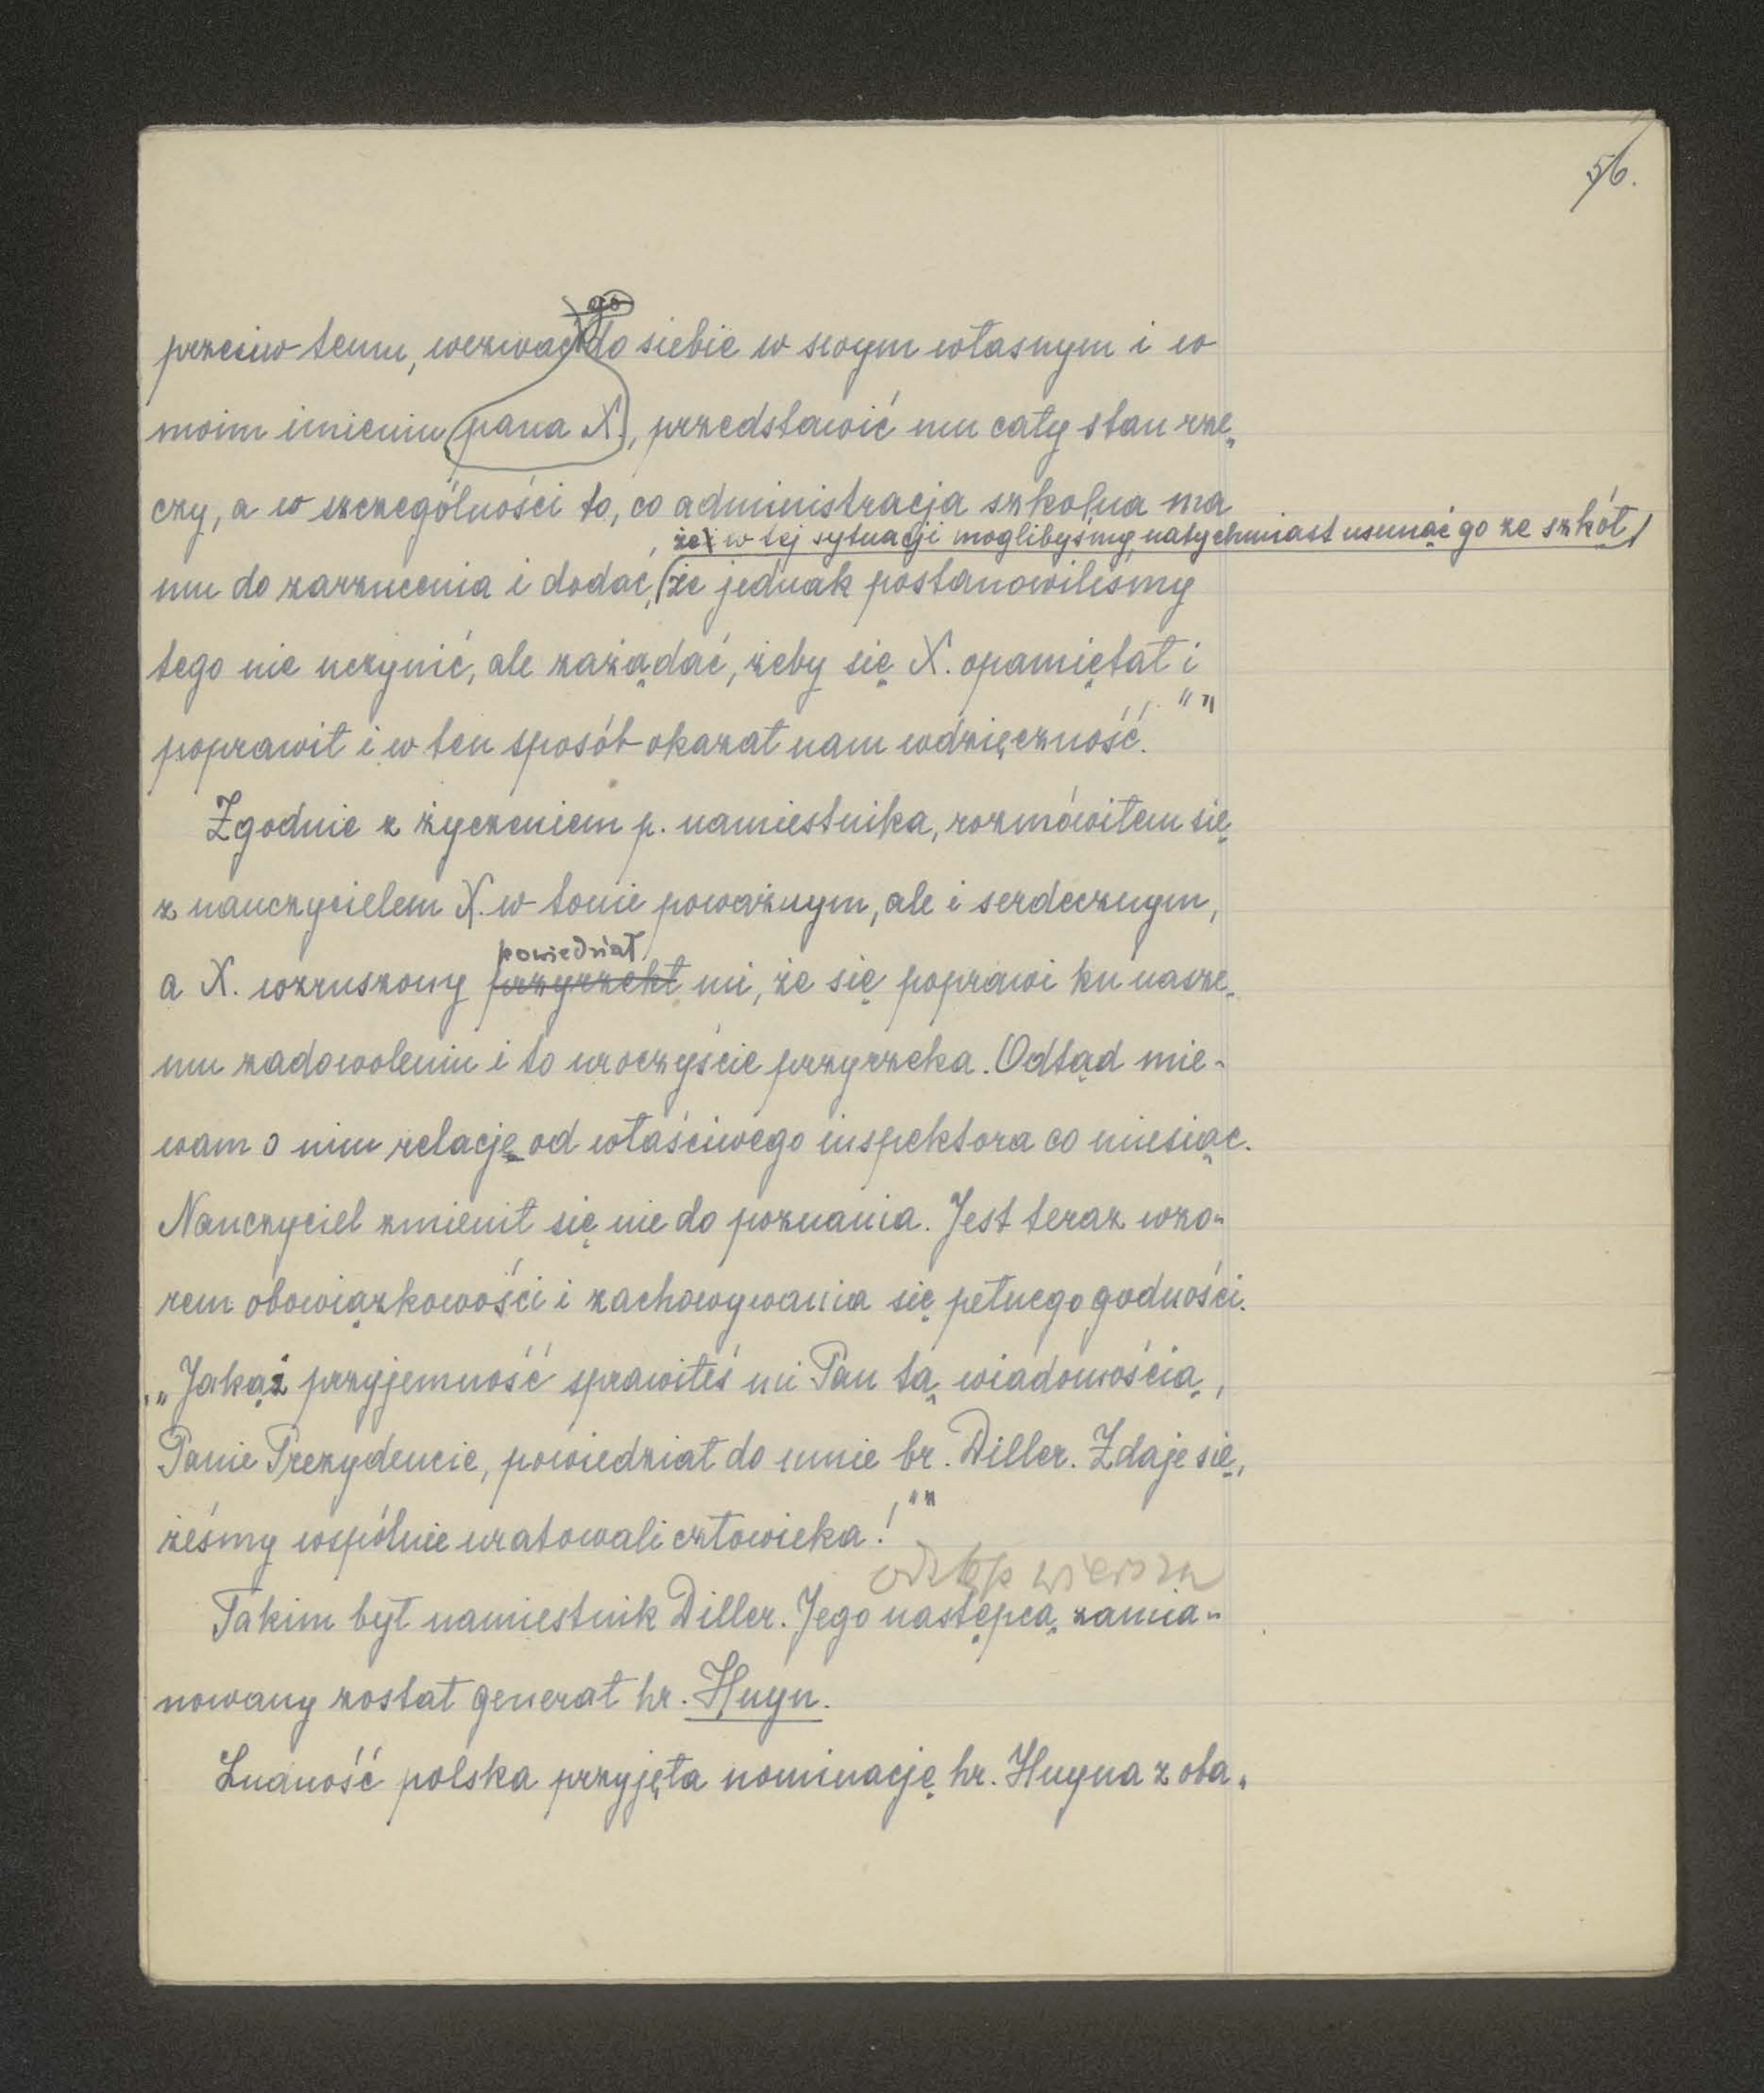 56.
go
przeciw temu, wezwać do siebie w swym własnym i w
moim imieniu pana X., przedstawić mu cały stan rze„
czy, a w szczególności to, co administracja szkolna ma
że i w tej sytuacji moglibyśmy natychmiast usunąć go ze szkół,
mu do zarzucenia i dodać, że jednak postanowiliśmy
tego nie uczynić, ale zażądać, żeby się X. opamiętał i
poprawił i w ten sposób okazał nam wdzięczność."”
Zgodnie z życzeniem p. namiestnika, rozmówiłem się
z nauczycielem X. w tonie poważnym, ale i serdecznym,
powiedział
a X. wzruszony przyrzekł mi, że się poprawi ku nasze„
mu zadowoleniu i to uroczyście przyrzeka. Odtąd mie-
wam o nim relacje od właściwego inspektora co miesiąc.
Nauczyciel zmienił się nie do poznania. Jest teraz wzo-
rem obowiązkowości i zachowywania się pełnego godności.
„Jakąż przyjemność sprawiłeś mi Pan tą wiadomością,
Panie Prezydencie, powiedział do mnie br. Diller. Zdaje się,
żeśmy wspólnie uratowali człowieka!"”
odstęp wiersza
Takim był namiestnik Diller. Jego następcą zamia-
nowany został generał hr. Huyn.
Ludność polska przyjęła nominację hr. Huyna z oba„